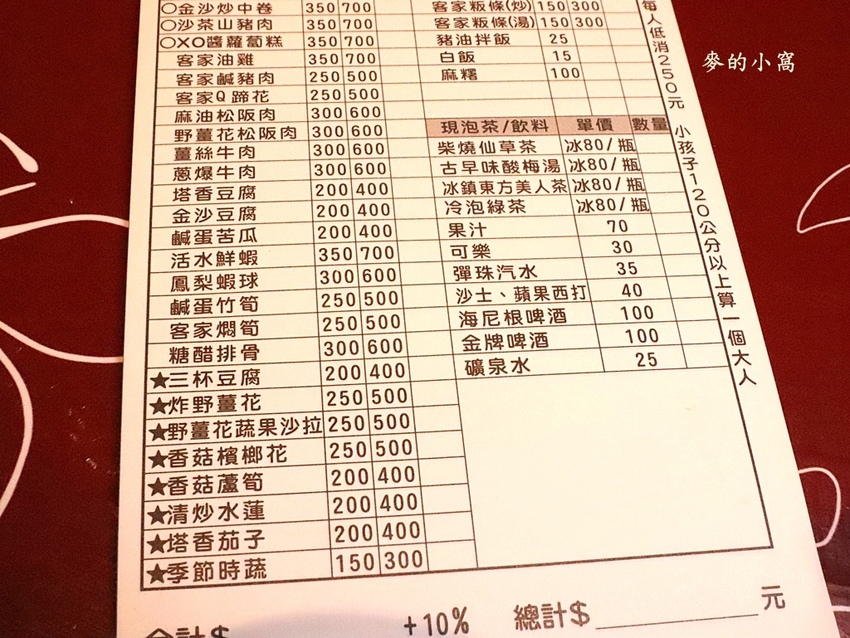 ○金沙炒中卷 350 700
○沙茶山豬肉 350 700
○XO醬蘿蔔糕 350 700
客家油雞 350 700
客家鹹豬肉 250 500
客家Q蹄花 250 500
麻油松阪肉 300 600
野薑花松阪肉 300 600
薑絲牛肉 300 600
蔥爆牛肉 300 600
塔香豆腐 200 400
金沙豆腐 200 400
鹹蛋苦瓜 200 400
活水鮮蝦 350 700
鳳梨蝦球 300 600
鹹蛋竹筍 250 500
客家燜筍 250 500
糖醋排骨 300 600
★三杯豆腐 200 400
★炸野薑花 250 500
★野薑花蔬果沙拉 250 500
★香菇檳榔花 250 500
★香菇蘆筍 200 400
★清炒水蓮 200 400
★塔香茄子 200 400
★季節時蔬 150 300
客家粄條(炒) 150 300
客家粄條(湯) 150 300
豬油拌飯 25
白飯 15
麻糬 100
現泡茶/飲料 單價 數量
柴燒仙草茶 冰80/瓶
古早味酸梅湯 冰80/瓶
冰鎮東方美人茶 冰80/瓶
冷泡綠茶 冰80/瓶
果汁 70
可樂 30
彈珠汽水 35
沙士、蘋果西打 40
海尼根啤酒 100
金牌啤酒 100
礦泉水 25
每人低消250元 小孩子120公分以上算一個大人
合計$ +10% 總計$ 元
麥的小窩